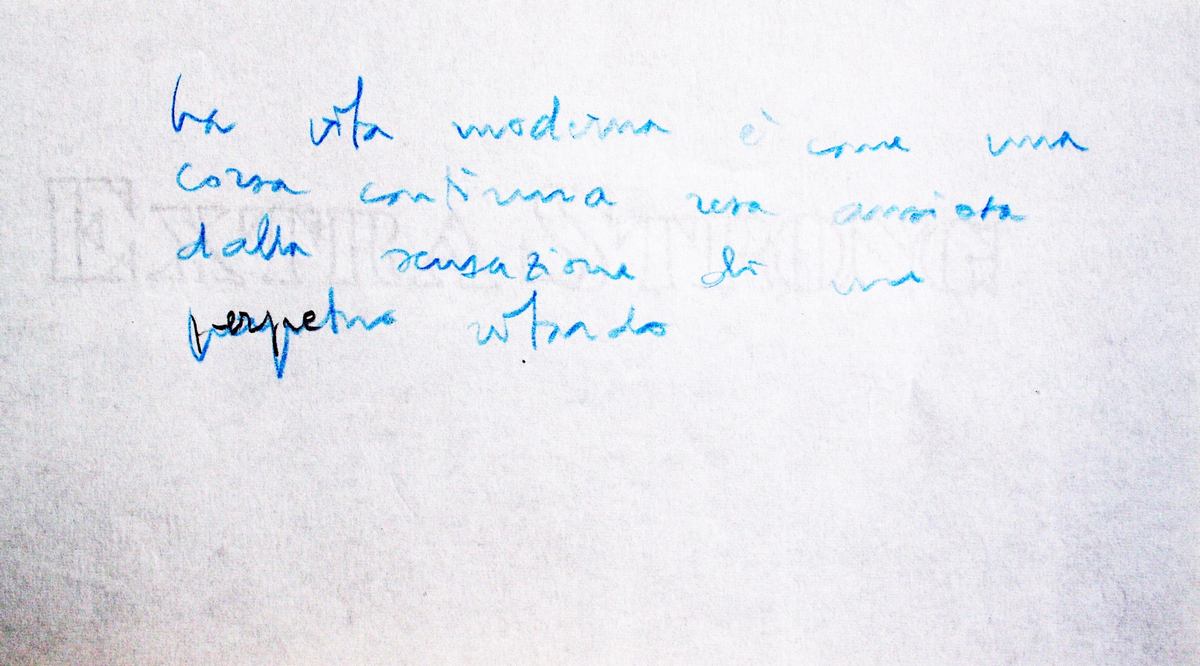 La vita moderna è come una
corsa continua resa ansiosa
dalla sensazione di un
perpetuo ritardo